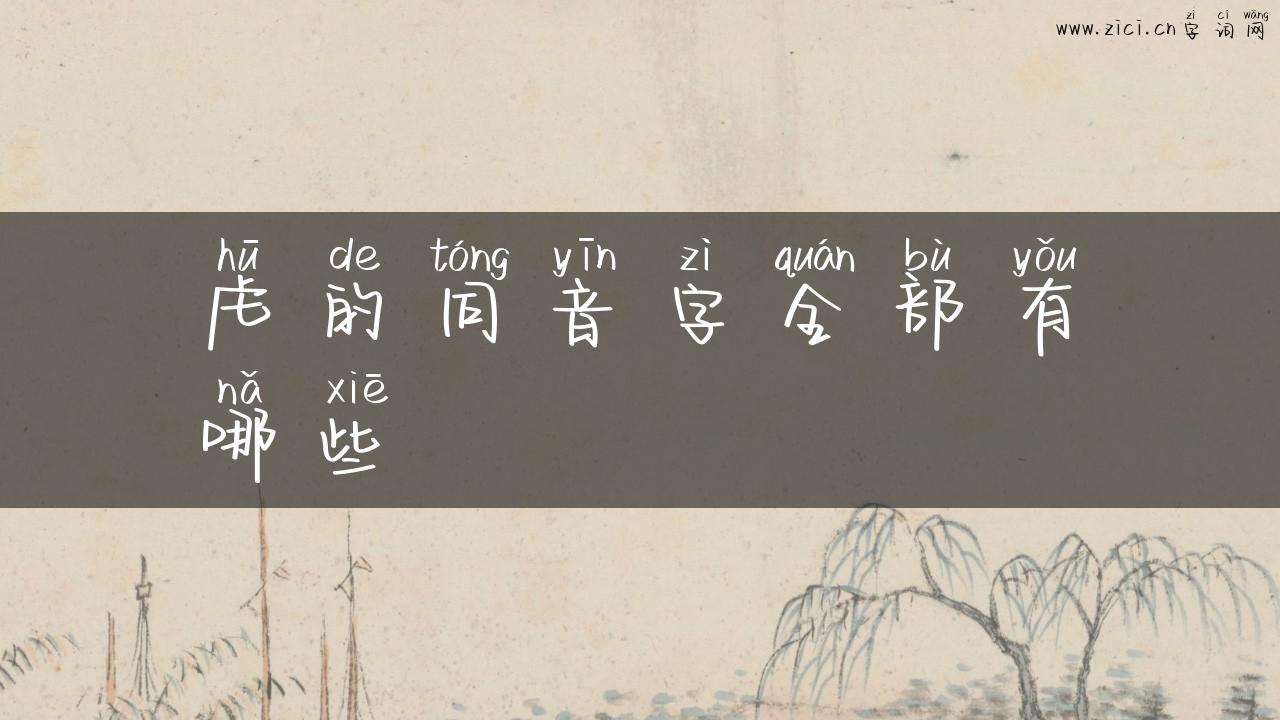 www.zici.cn zì cí wǎng
字词网
hū de tóng yīn zì quán bù yǒu
虍的同音字全部有
nǎ xiē
哪些